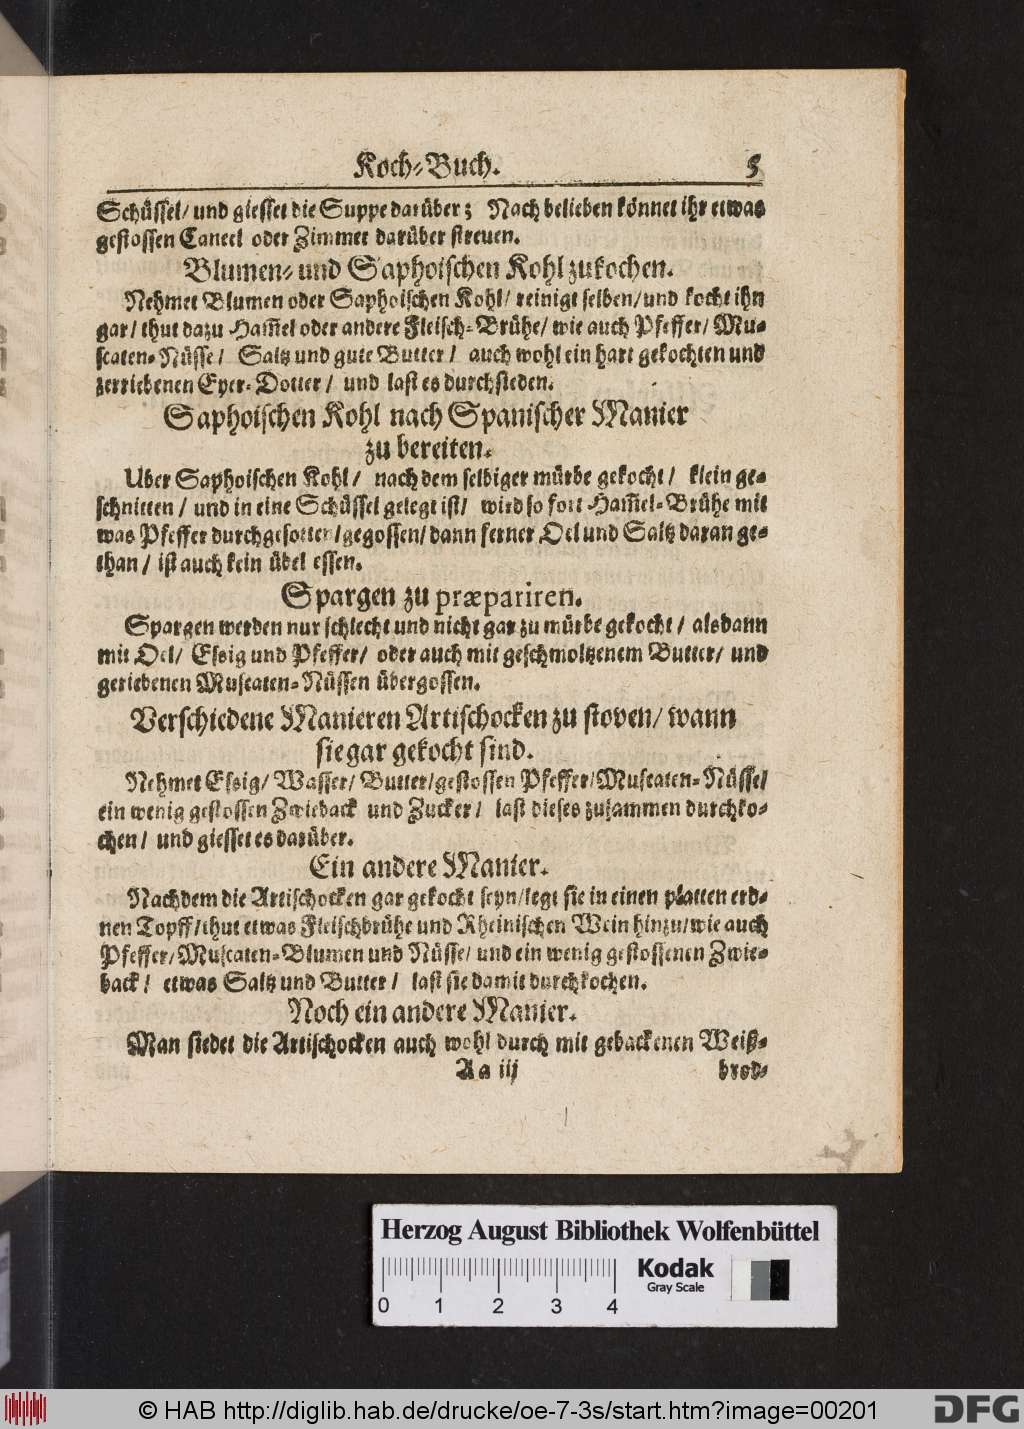 Koch-Buch. 5
Schüssel/ und giesset die Suppe darüber; Nach belieben könnet ihr etwas
gestossen Caneel oder Zimmet darüber streuen.
Blumen- und Saphoischen Kohl zukochen.
Nehmet Blumen oder Saphoischen Kohl/ reinigt selben/ und kocht ihn
gar/ thut dazu Ham̅el oder andere Fleisch-Brühe/ wie auch Pfeffer/ Mu-
scaten-Nüsse/ Saltz und gute Butter/ auch wohl ein hart gekochten und
zerriebenen Eyer-Dotter/ und last es durchsieden.
Saphoischen Kohl nach Spanischer Manier
zu bereiten.
Uber Saphoischen Kohl/ nach dem selbiger mürbe gekocht/ klein ge-
schnitten/ und in eine Schüssel gelegt ist/ wird so fort Ham̅el-Brühe mit
was Pfeffer durchgesotten/gegossen/ dann ferner Oel und Saltz daran ge-
than/ ist auch kein übel essen.
Spargen zu præpariren.
Spargen werden nur schlecht und nicht gar zu mürbe gekocht/ alsdann
mit Oel/ Essig und Pfeffer/ oder auch mit geschmoltzenem Butter/ und
geriebenen Muscaten-Nüssen übergossen.
Verschiedene Manieren Artischocken zu stoven/ wann
sie gar gekocht sind.
Nehmet Essig/ Wasser/ Butter/gestossen Pfeffer/Muscaten-Nüsse/
ein wenig gestossen Zwieback und Zucker/ last dieses zusammen durchko-
chen/ und giesset es darüber.
Ein andere Manier.
Nachdem die Artischocken gar gekocht seyn/legt sie in einen platten erd-
nen Topff/thut etwas Fleischbrühe und Rheinischen Wein hinzu/wie auch
Pfeffer/Muscaten-Blumen und Nüsse/ und ein wenig gestossenen Zwie-
back/ etwas Saltz und Butter/ last sie damit durchkochen.
Noch ein andere Manier.
Man siedet die Artischocken auch wohl durch mit gebackenen Weiß-
Aa iij brod-
Herzog August Bibliothek Wolfenbüttel
Kodak
Gray Scale
0 1 2 3 4
© HAB http://diglib.hab.de/drucke/oe-7-3s/start.htm?image=00201
DFG